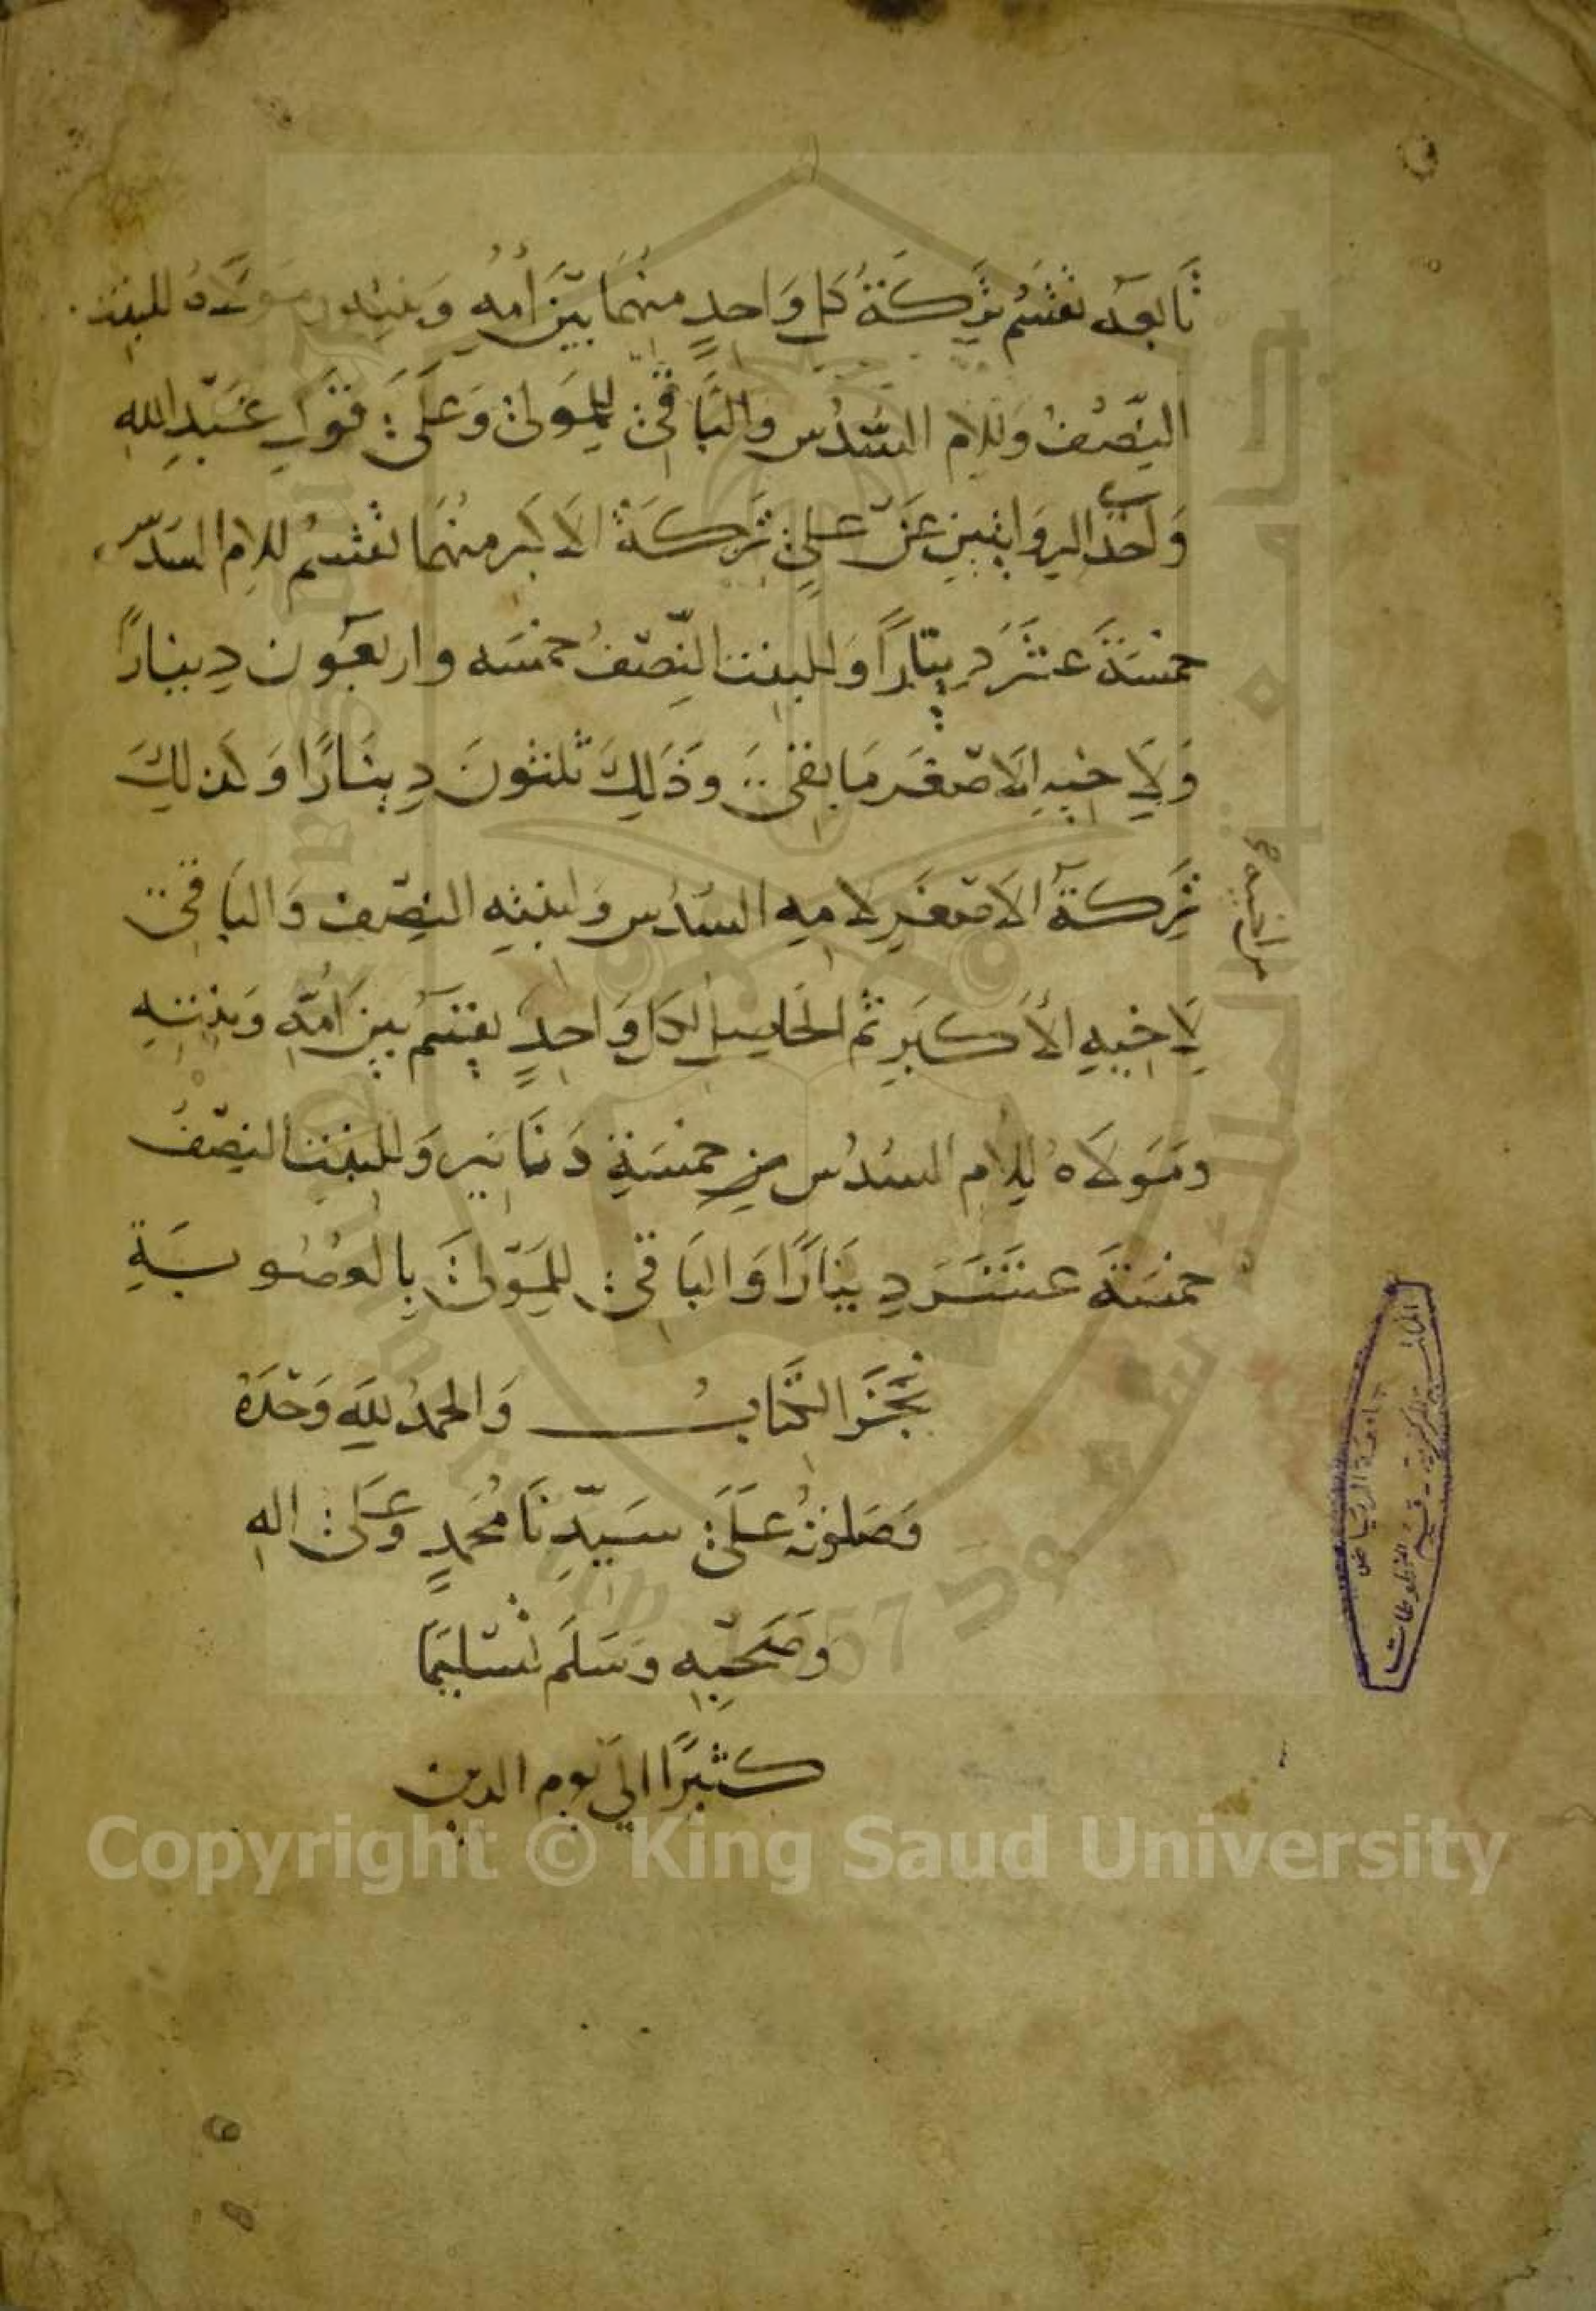 تابعه تقسم تركة كل واحدٍ منهما بين أمه وبنته ومولاه للبنت
النصف وللام السدس والباقي للمولى وعلى قول عبد الله
واحدى الروايتين عن علي تركة الاكبر منهما تقسم للام السدس
خمسة عشر دينارًا وللبنت النصف خمسه واربعون دينارًا
ولاخيه الاصغر ما بقي وذلك ثلثون دينارًا وكذلك
تركة الاصغر لامه السدس ولبنته النصف والباقي
لاخيه الأكبر ثم الحاصل لكل واحدٍ يقسم بين امه وبنته
ومولاه للام السدس خمسة دنانير وللبنت النصف
خمسة عشر دينارًا والباقي للمولى بالعصوبة
نجز الكتاب والحمد لله وحده
وصلوته على سيدنا محمدٍ وعلى اله
وصحبه وسلم تسليما
كثيرًا الى يوم الدين
جامعة الرياض
المكتبة المركزية - قسم المخطوطات
جامعة الملك سعود
1957
King Saud University
Copyright © King Saud University